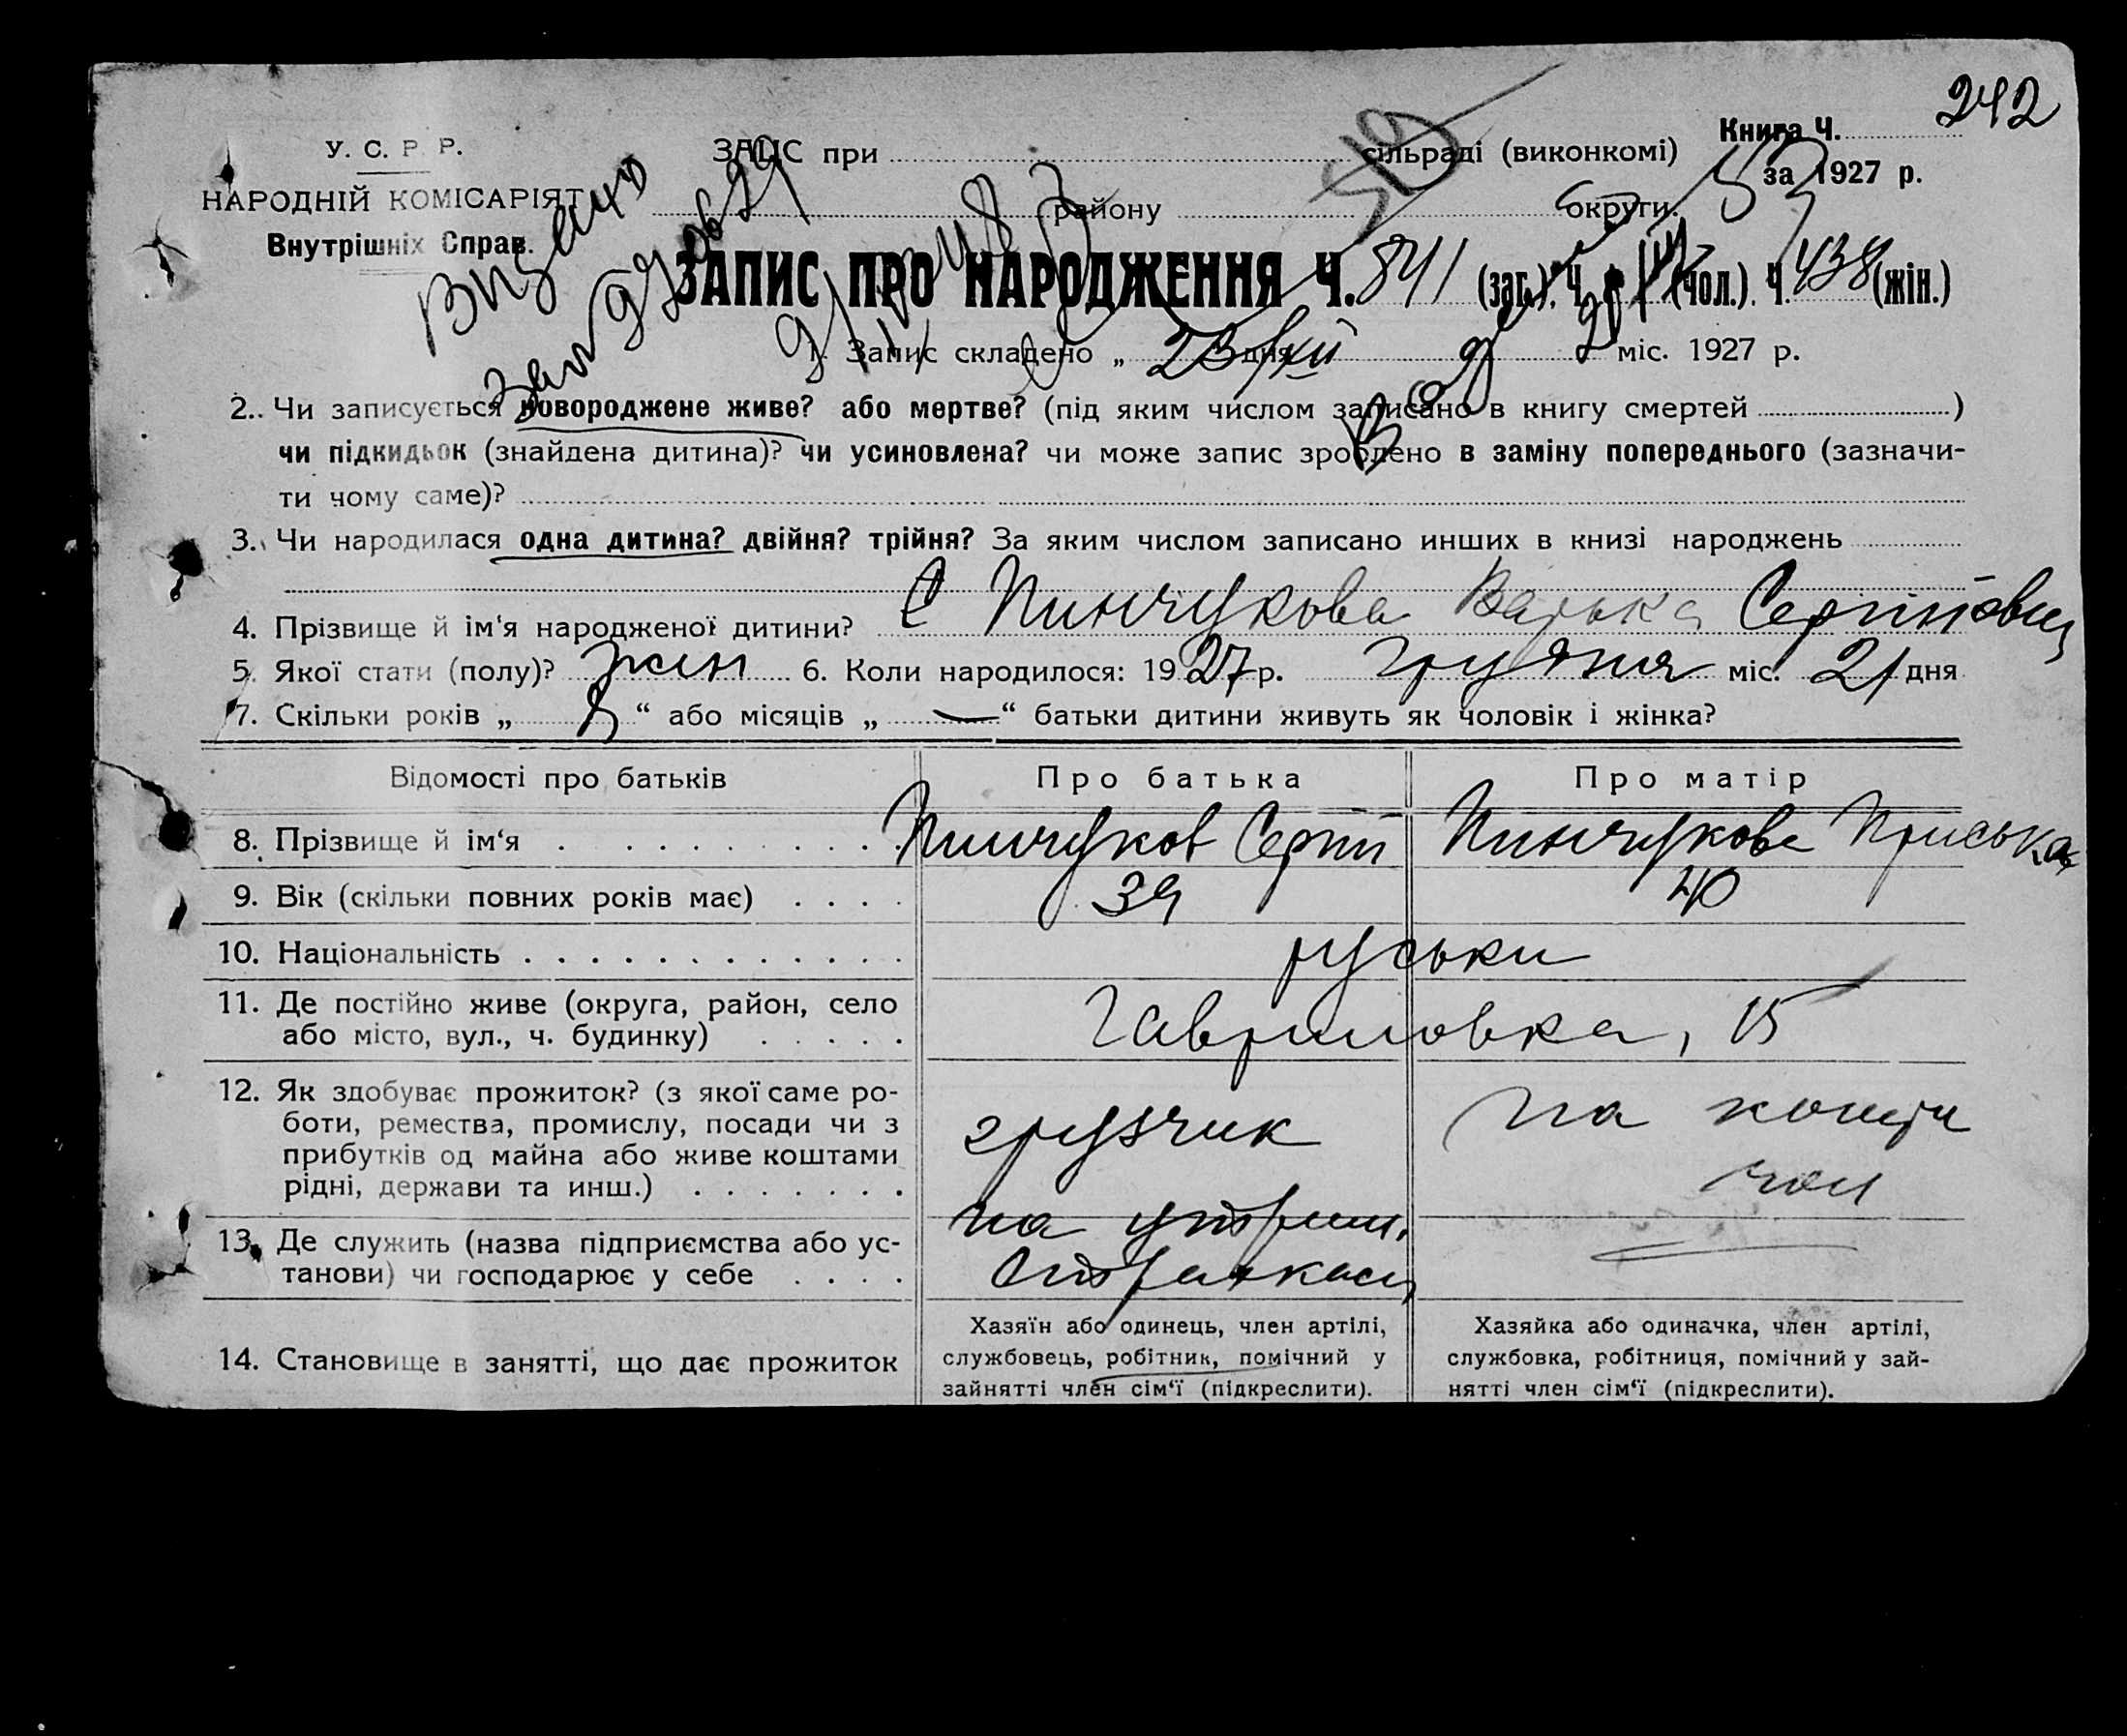 242
У. С. Р. Р.
НАРОДНІЙ КОМІСАРІЯТ
Внутрішніх Справ.
ЗАПИС при сільраді (виконкомі)
Книга Ч.
за 1927 р.
району округи.
ЗАПИС ПРО НАРОДЖЕННЯ Ч. 841 (заг.), Ч. (чол.). Ч. 438 (жін.)
1. Запис складено „ 23/XII дня міс. 1927 р.
2. Чи записується новороджене живе? або мертве? (під яким числом записано в книгу смертей )
чи підкидьок (знайдена дитина)? чи усиновлена? чи може запис зроблено в заміну попереднього (зазначи-
ти чому саме)?
3. Чи народилася одна дитина? двійня? трійня? За яким числом записано инших в книзі народжень
4. Прізвище й ім'я народженої дитини? Пинчукова Варька
5. Якої стати (полу)? жін 6. Коли народилося: 1927 р. грудня міс. 21 дня
7. Скільки років „ “ або місяців „ — “ батьки дитини живуть як чоловік і жінка?
Відомості про батьків Про батька Про матір
8. Прізвище й ім‘я Пинчуков Сергій Пинчукова Приська
9. Вік (скільки повних років має) 39 40
10. Національність руськи
11. Де постійно живе (округа, район, село
або місто, вул., ч. будинку) Гавриловка, 15
12. Як здобуває прожиток? (з якої саме ро-
боти, ремества, промислу, посади чи з
прибутків од майна або живе коштами
рідні, держави та инш.)
грузчик
на утрим.
на кошти
чол
13. Де служить (назва підприємства або ус-
танови) чи господарює у себе
Страхкаси
14. Становище в занятті, що дає прожиток
Хазяїн або одинець, член артілі,
службовець, робітник, помічний у
зайнятті член сім‘ї (підкреслити).
Хазяйка або одиначка, член артілі,
службовка, робітниця, помічний у зай-
нятті член сім‘ї (підкреслити).